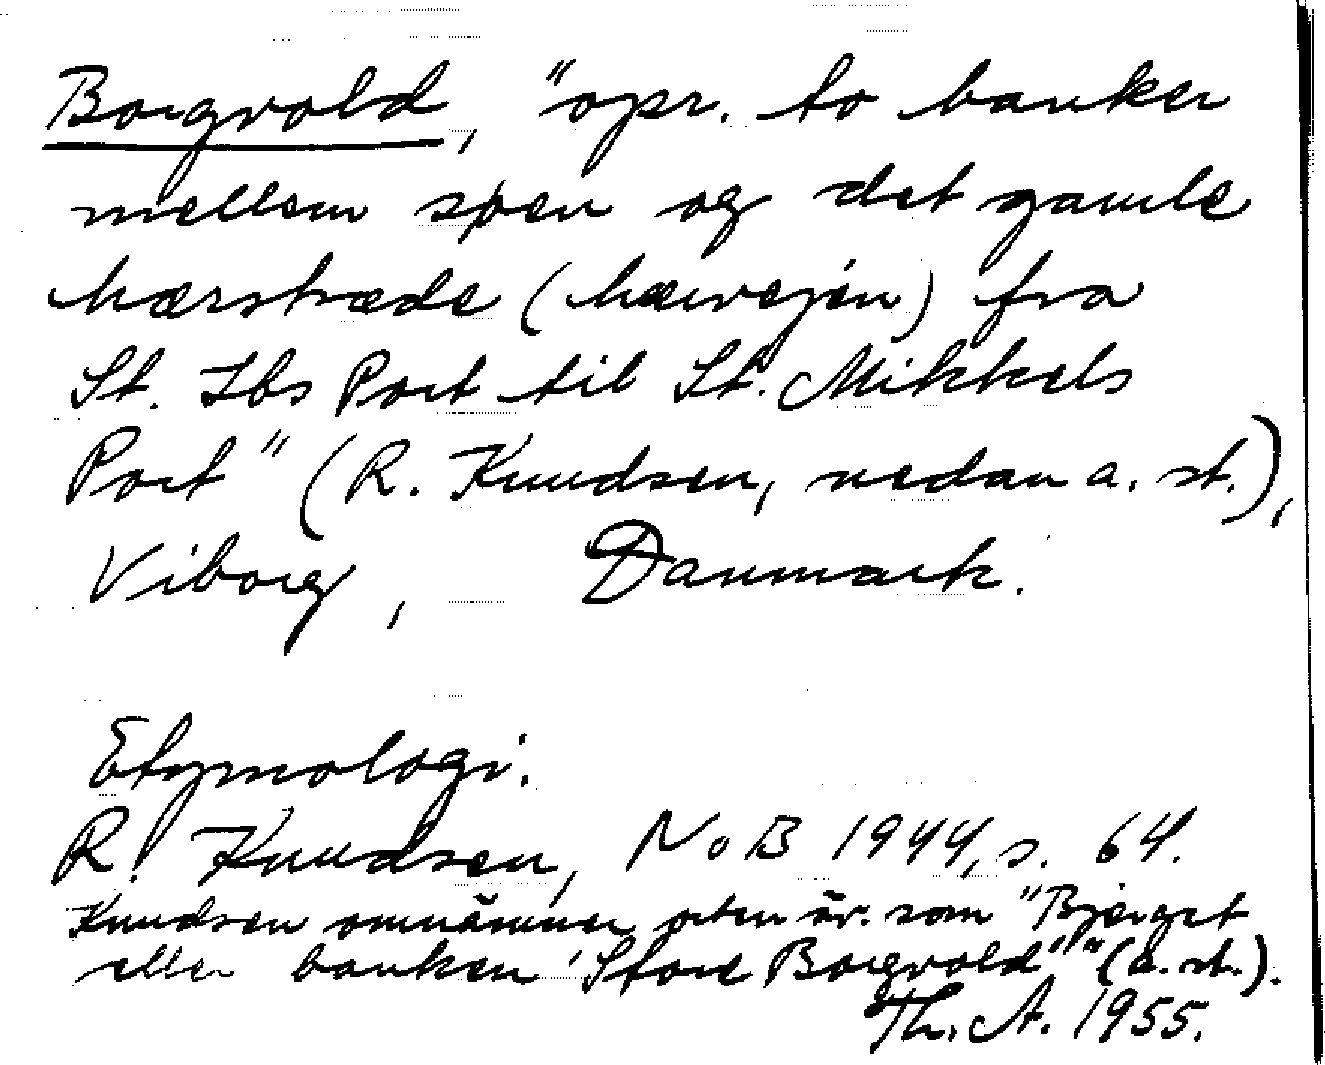 Borgvold, "opr. to banker
mellem søen og det gamle
hærstræde (hærvejen) fra
St. Ibs Port til St. Mikkels
Port" (R. Knudsen, nedan a. st.),
Viborg, Danmark.
Etymologi.
R. Knudsen, NoB 1944, s. 64.
Knudsen omnämner orten äv. som "Bjerget
eller banken 'Store Borgvold'" (a. st.).
Th. A. 1955.